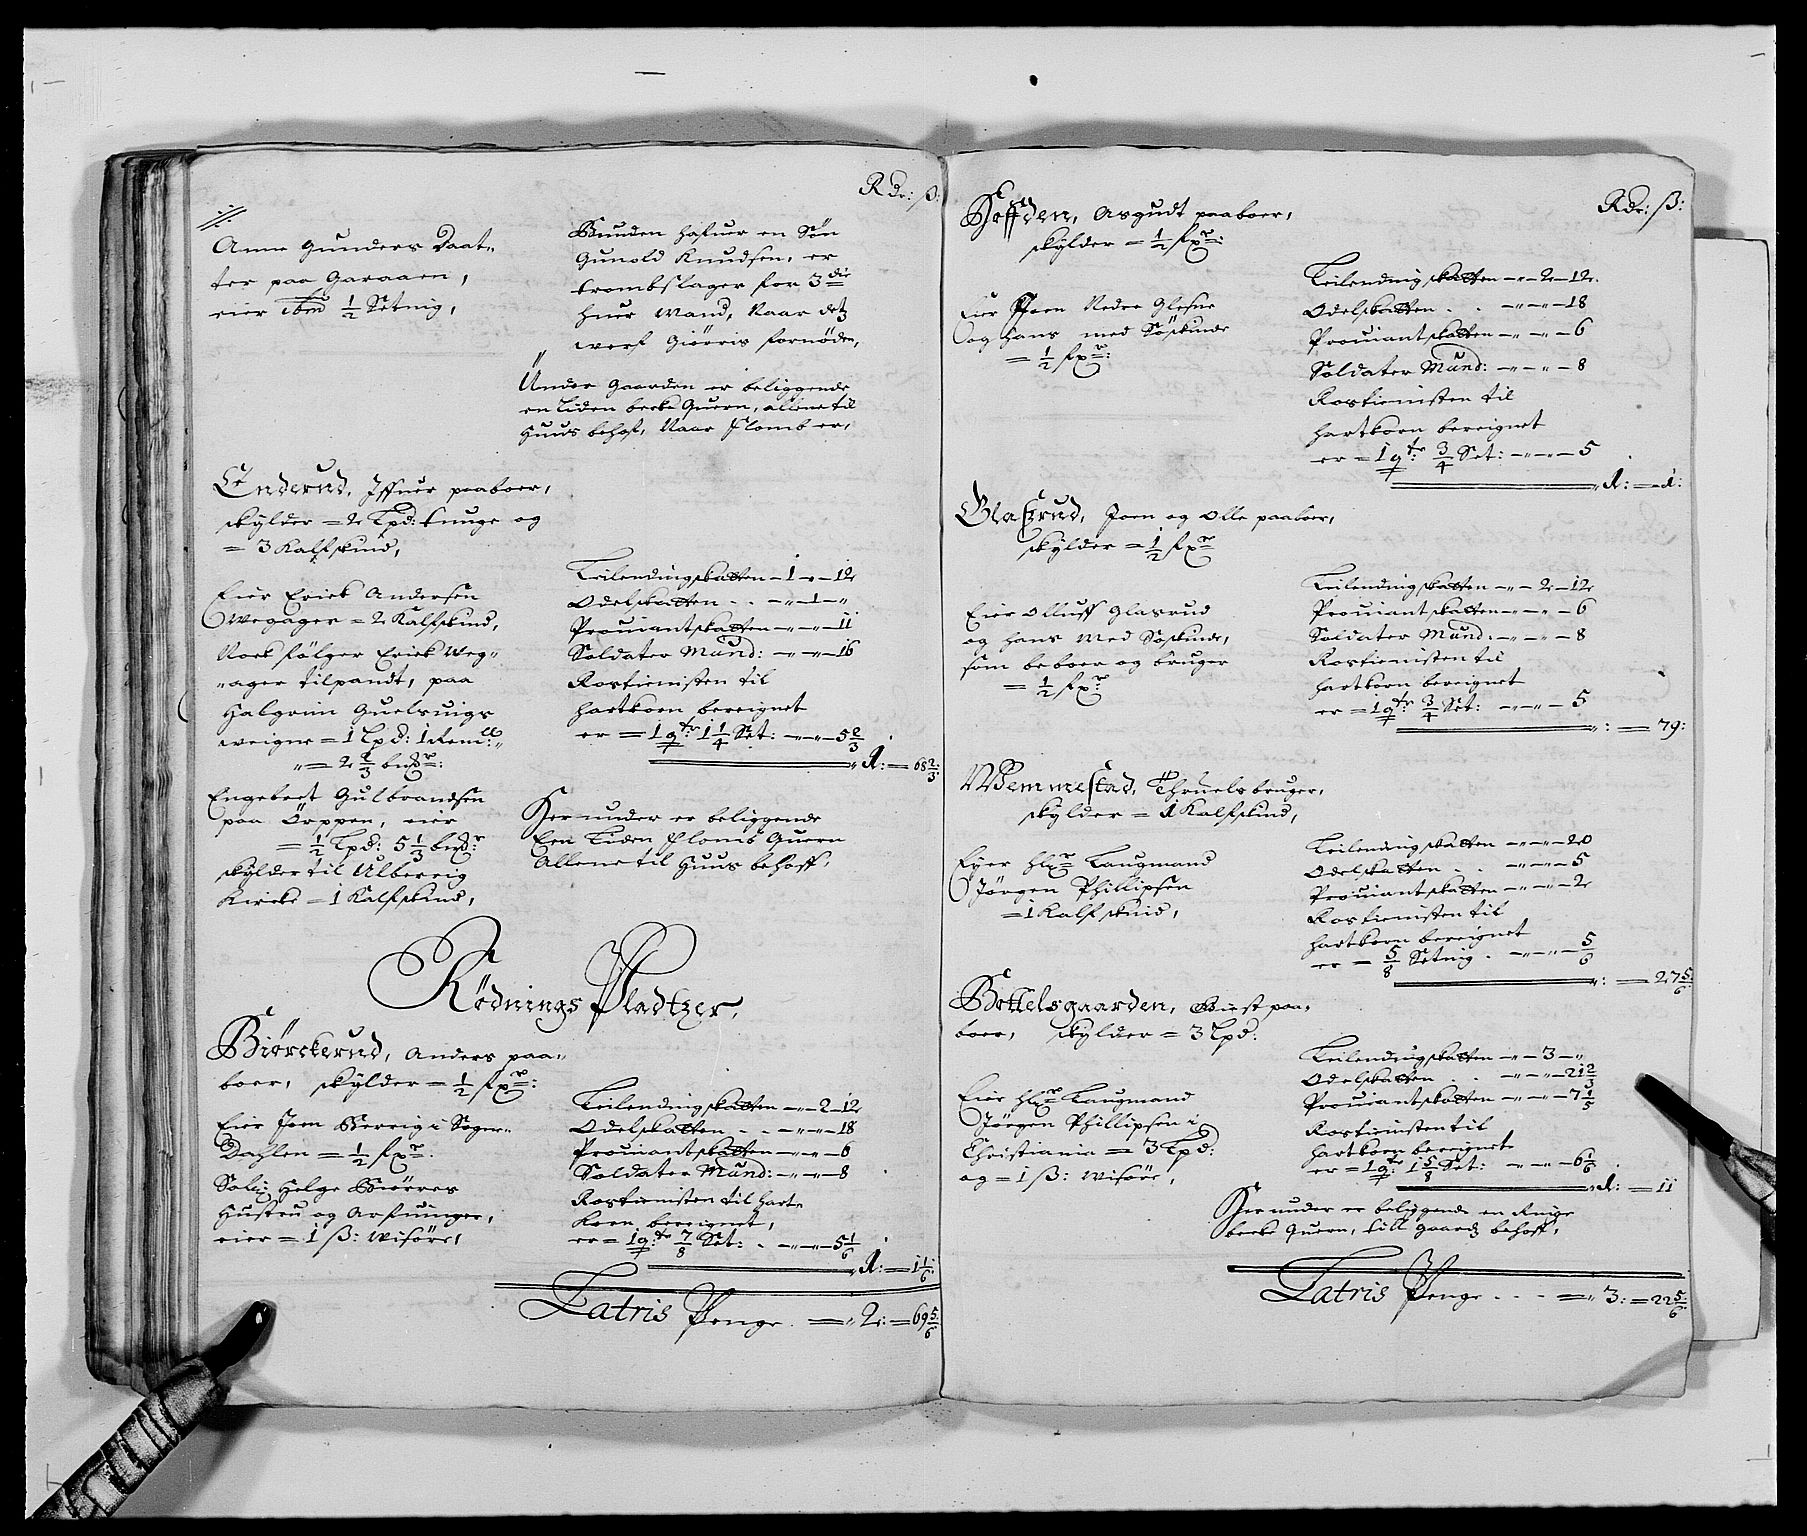 Rdr: ß:
Anne Gunders Daat-
ter paa Garaaen,
eier ibm ½ Setnig,
Bunden hafuer en Søn
Gunold Knudsen, er
trombslager for 3die
huer Mand, Naar dets
werf Giörris fornöden,
Under Gaarden er beliggende
en Liden becke Quern, allene til
huus behof, Naar flomb er,
Enderud, Iffuer paaboer,
skylder = 2 Lpd: tunge og
= 3 Kalfskind,
Eier Erick Andersen
Wegager = 2 Kalfskind,
Noch følger Erick Weg-
ager til pandt, paa
Halgrim Quelsuigs
weigne = 1 Lpd: 1 Remll:
= 2 2/3 bmr:
Engebret Gulbrandsen
paa Örppen, eier
= ½ Lpd: 5 1/3 bmr:
skylder til Ulbereig
Kircke = 1 Kalfskind,
Leilendingskatten - 1 - - 12
Odelskatten . . - - 1 -
Prouiantskatten - - - 11
Soldater Mund: - - - 16
Rostienisten til
hartkorn bereignet
er = 1 qtr 1¼ Set: - - - 5 2/3
1: = 68 2/3:
Her under er beliggende
Een Liden flomb Quern
Allene til huus behoff,
Rødnings Pladtzer,
Biörckerud, Anders paa-
boer, skylder = ½ fxr:
Eier Joen Berrig i Soger-
Dahlen = ½ fxr.
Salig Helge Biörres
Hustru og Arfuinger,
eier = 1 ß: Misöre,
Leilendingskatten - - 2 - 12
Odelskatten . . - - - 18
Prouiantskatten - - - 6
Soldater Mund: - - - 8
Rostienisten til hart-
korn bereignet,
er = 1 qtr 7/8 Set: . - - - 5 1/6
1: = 1 1/6:
Latris Penge . = 2: = 69 5/6
Rdr: ß:
Hoffden, Asgudt paaboer,
skylder = ½ fxr:
Eier Joen Nedre Glesne
og hans med Söskinde
= ½ fxr:
Leilendingskatten - - 2 - 12
Odelskatten . . - - - 18
Prouiantskatten - - - 6
Soldater Mund: - - - 8
Rostienisten til
hartkorn bereignet
er = 1 qtr ¾ Set: - - - 5
1: = 1:
Glasrud, Joen og Olle paaboer,
skylder = ½ fxr
Eier Olluff Glasrud
og hans Med Söskinde,
som beboer og bruger
= ½ fxr:
Leilendingskatten - - 2 - 12
Prouiantskatten - - - 6
Soldater Mund: - - - 8
Rostienisten til
hartkorn bereignet
er = 1 qtr ¾ Set: - - - 5
: = 79:
Wemmestad, Thruels bruger,
skylder = 1 Kalfskind,
Eyer Hr Laugmand
Jörgen Phillipsen
= 1 Kalfskind,
Leilendingskatten - - - 20
Odelskatten . . - - - 5
Prouiantskatten - - - 2
Rostienisten til
hartkorn bereignet
er = 5/8 Setnig . - - - 5/6
: = 27 5/6
Bottelsgaarden, Biest paa-
boer, skylder = 3 Lpd:
Eier Hr Laugmand
Jörgen Phillipsen i
Christiania = 3 Lpd:
og = 1 ß: Misöre,
Leilendingskatten - - 3 -
Odelskatten . . - - - 21 2/3
Prouiantskatten - - - 7 1/5
Rostienisten til
hartkorn bereignet
er = 1 qtr 1 5/8 Set: - - - 6 1/6
1: = 11
Her under er beliggende en Ringe
becke Quern, till gaards behoff,
Latris Penge . . . = 3: = 22 5/6